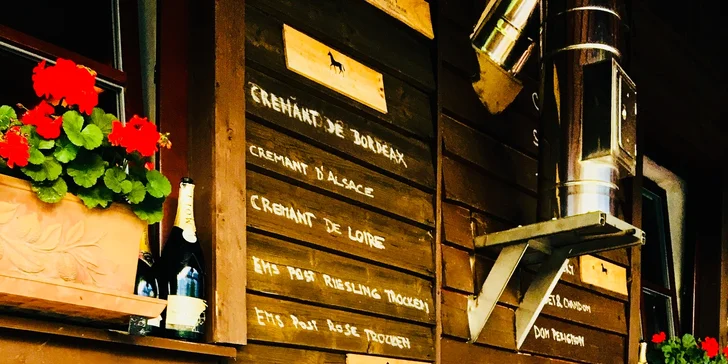 CREMANT DE BORDEAX
CREMANT D'ALSACE
CREMANT DE LOIRE
EMS POST RIESLING TROCKEN
EMS POST ROSE TROCKEN
ET & CHANDON
DOM PERIGNON